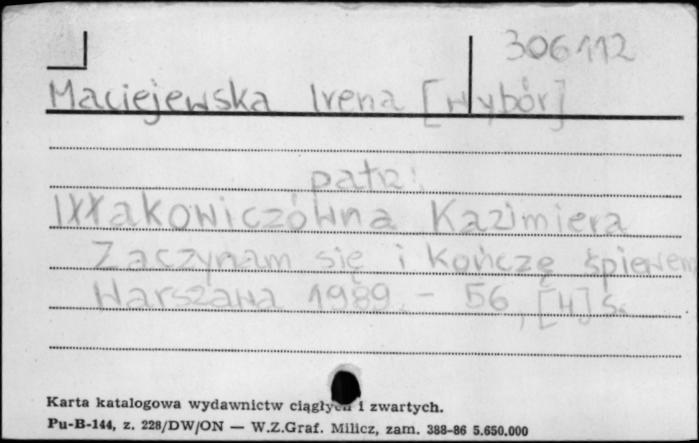 306112
Maciejewska Irena [wybór]
patrz:
Iłłakowiczówna Kazimiera
Zaczynam się i kończę śpiewem
Warszawa 1989. - 56, [4] s.
Karta katalogowa wydawnictw ciągłych i zwartych.
Pu-B-144, z. 228/DW/ON — W.Z.Graf. Milicz, zam. 388-86 5.650.000